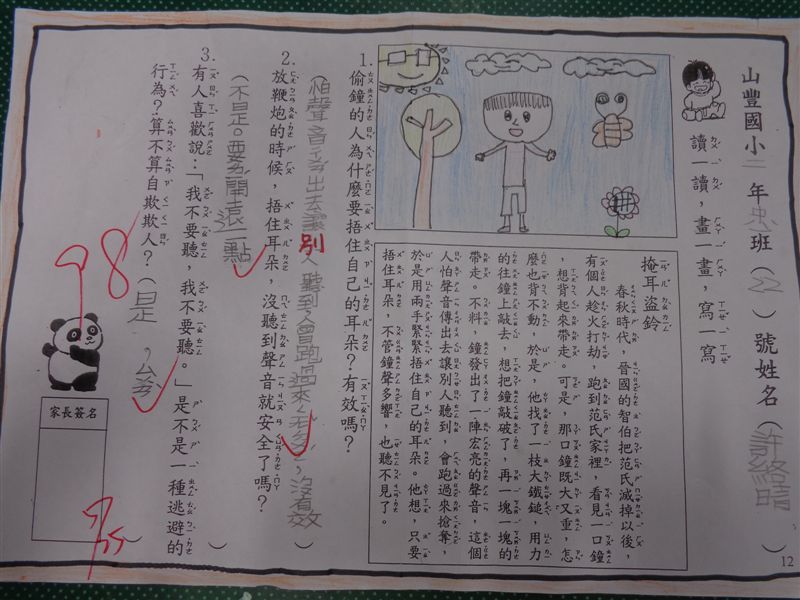 山豐國小二年忠班（22）號姓名（許絡晴）
讀一讀，畫一畫，寫一寫
掩耳盜鈴
春秋時代，晉國的智伯把范氏滅掉以後，
有個人趁火打劫，跑到范氏家裡，看見一口鐘
，想背起來帶走。可是，那口鐘既大又重，怎
麼也背不動，於是，他找了一枝大鐵鎚，用力
的往鐘上敲去，想把鐘敲破了，再一塊一塊的
帶走。不料，鐘發出了一陣宏亮的聲音，這個
人怕聲音傳出去讓別人聽到，會跑過來搶奪，
於是用兩手緊緊捂住自己的耳朵。他想，只要
捂住耳朵，不管鐘聲多響，也聽不見了。
1.偷鐘的人為什麼要捂住自己的耳朵？有效嗎？
（怕聲音出去讓別人聽到會跑過來，沒有效
2.放鞭炮的時候，捂住耳朵，沒聽到聲音就安全了嗎？
（不是。要離遠一點）
3.有人喜歡說：「我不要聽，我不要聽。」是不是一種逃避的
行為？算不算自欺欺人？（是，算）
98
家長簽名
5/25
12